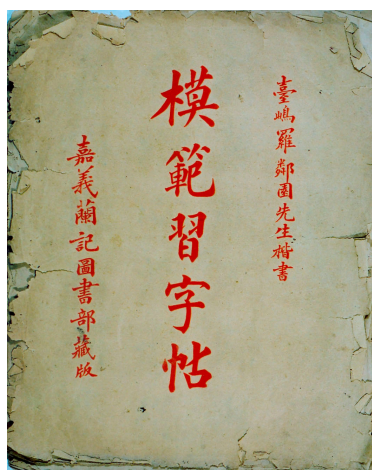 臺嶋羅鄰園先生楷書
模範習字帖
嘉義蘭記圖書部藏版